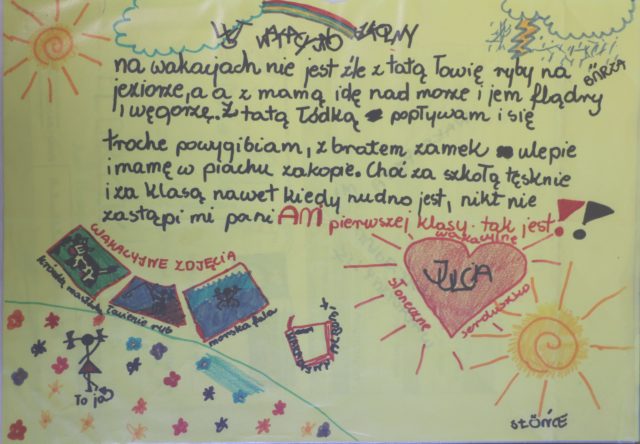 WAKACYJNO
BÓRZA
na wakacjach nie jest źle z tatą łowię ryby na
jeziorze, a a z mamą idę nad morze i jem flądry
i węgorze. Z tatą łódką popływam i się
troche powygibiam, z bratem zamek ulepie
i mamę w piachu zakopie. Choć za szkołą tęsknie
i za klasą nawet kiedy nudno jest, nikt nie
zastąpi mi pani AM pierwszej klasy. tak jest!!
WAKACYJNE ZDJĘCIA
łowienie ryb
morska fala
To ja
wakacyjne
słoneczne
serduszko
JULCA
SŁÓŃCE